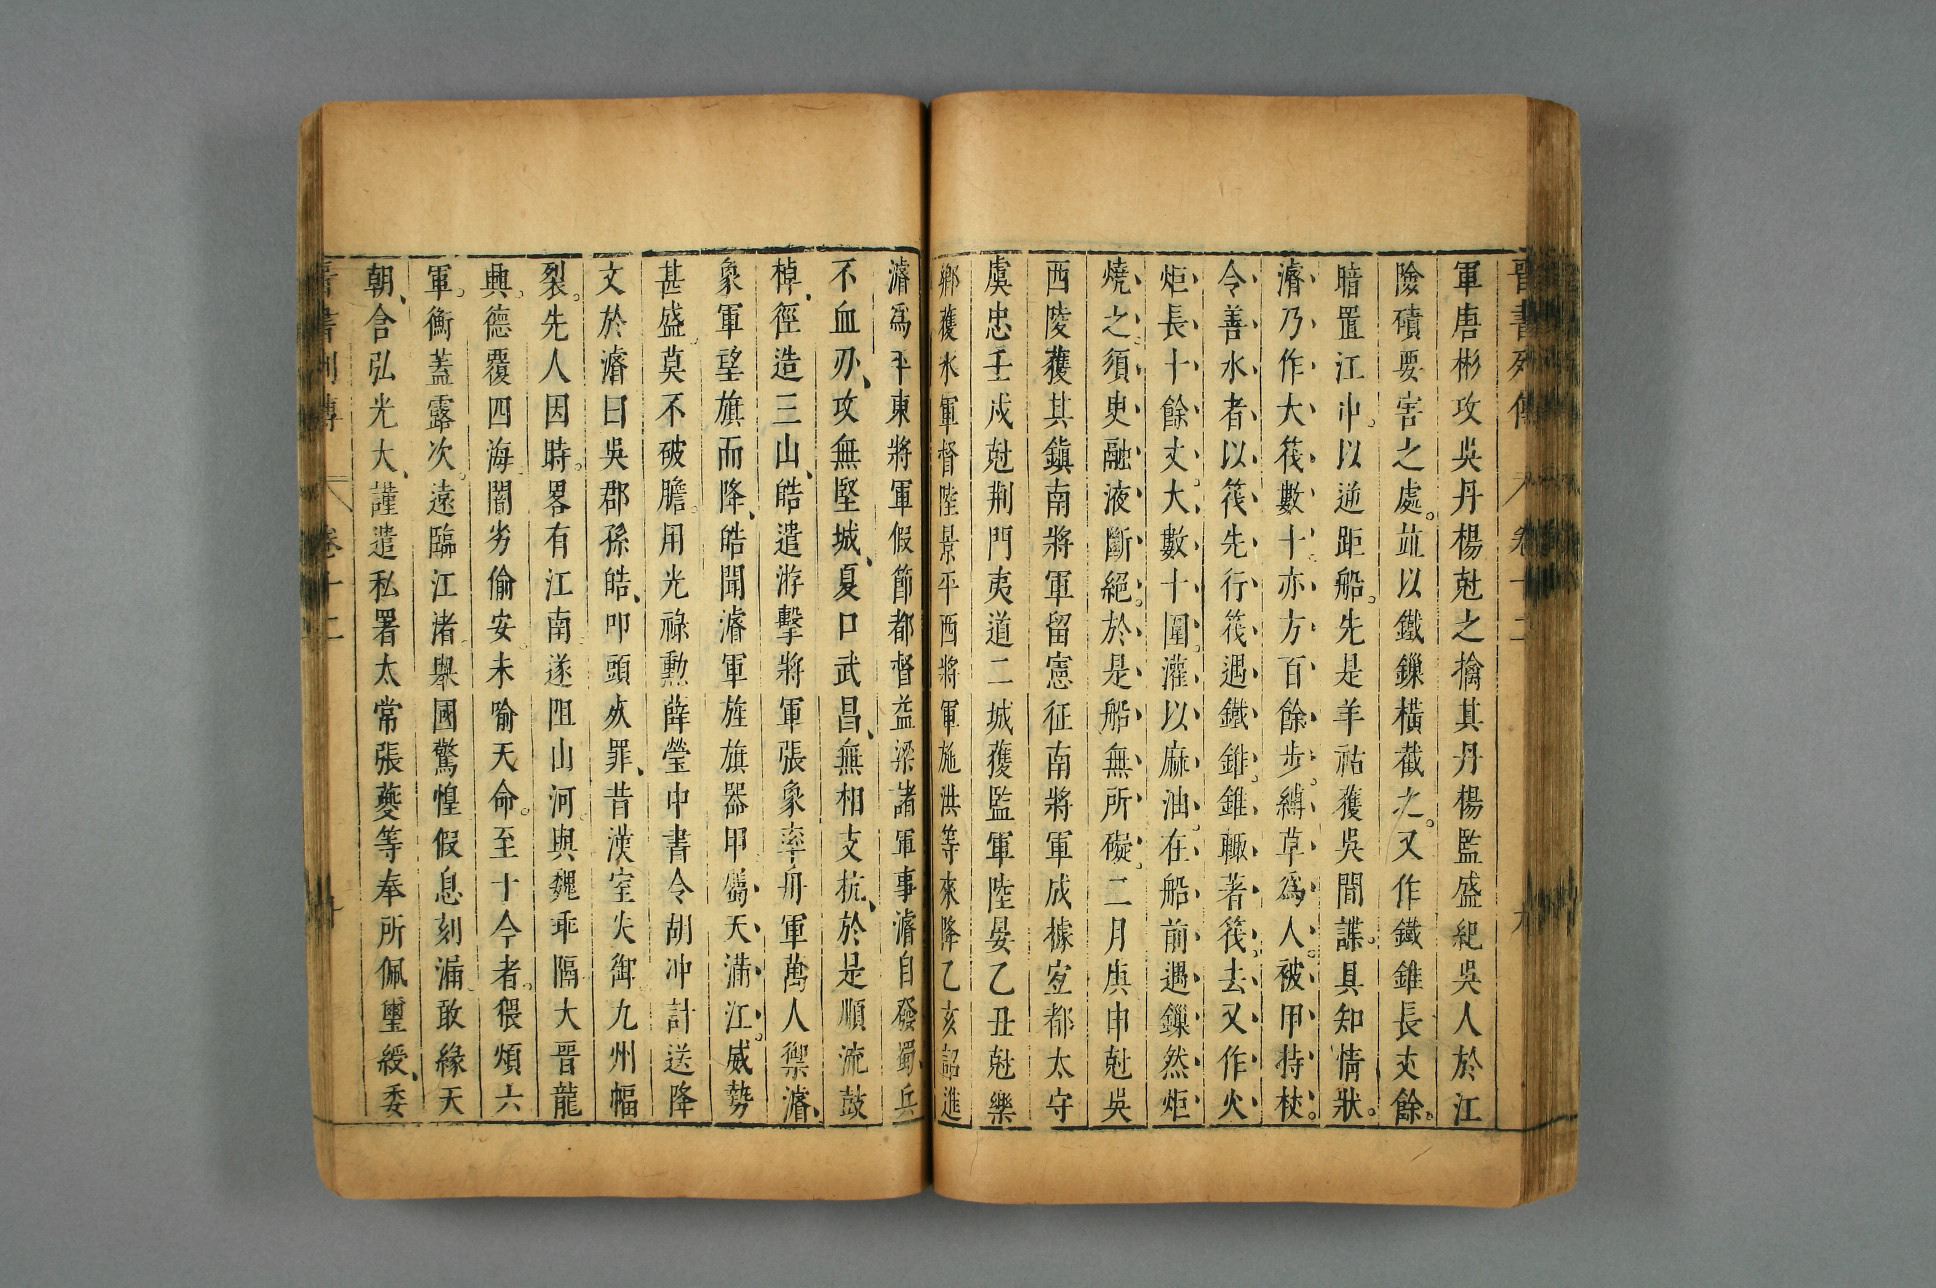 晉書列傳 卷十二 九
軍唐彬攻吳丹楊尅之擒其丹楊監盛紀吳人於江
險磧要害之處。竝以鐵鏁橫截之。又作鐵錐長丈餘。
暗置江中。以逆距船。先是羊祜獲吳間諜。具知情狀。
濬乃作大筏數十亦方百餘步。縛草爲人。被甲持杖。
令善水者以筏先行筏遇鐵錐。錐輙著筏。去又作火
炬長十餘丈。大數十圍。灌以麻油。在船前遇鏁然炬
燒之。須史融液斷絕。於是船無所礙。二月庚申尅吳
西陵獲其鎮南將軍留憲征南將軍成據宜都太守
虞忠壬戌尅荆門夷道二城獲監軍陸晏乙丑尅樂
鄉獲水軍督陸景平西將軍施洪等來降乙亥詔進
濬爲平東將軍假節都督益梁諸軍事濬自發蜀兵
不血刃、攻無堅城、夏口武昌、無相支抗、於是順流鼓
棹、徑造三山、皓遣游擊將軍張象率舟軍萬人禦濬、
象軍望旗而降、皓聞濬軍旌旗器甲屬天滿江。威勢
甚盛莫不破膽。用光祿勲薛瑩中書令胡沖計送降
文於濬曰吳郡孫皓、叩頭死罪、昔漢室失御九州幅
裂。先人因時。畧有江南遂阻山河與魏乖隔大晉龍
興。德覆四海闇劣偷安。未喻天命。至于今者。猥煩六
軍。衡蓋露次。遠臨江渚舉國驚惶假息刻漏敢緣天
朝、含弘光大、謹遣私署太常張夔等奉所佩璽綬、委
晉書列傳 卷十二 十